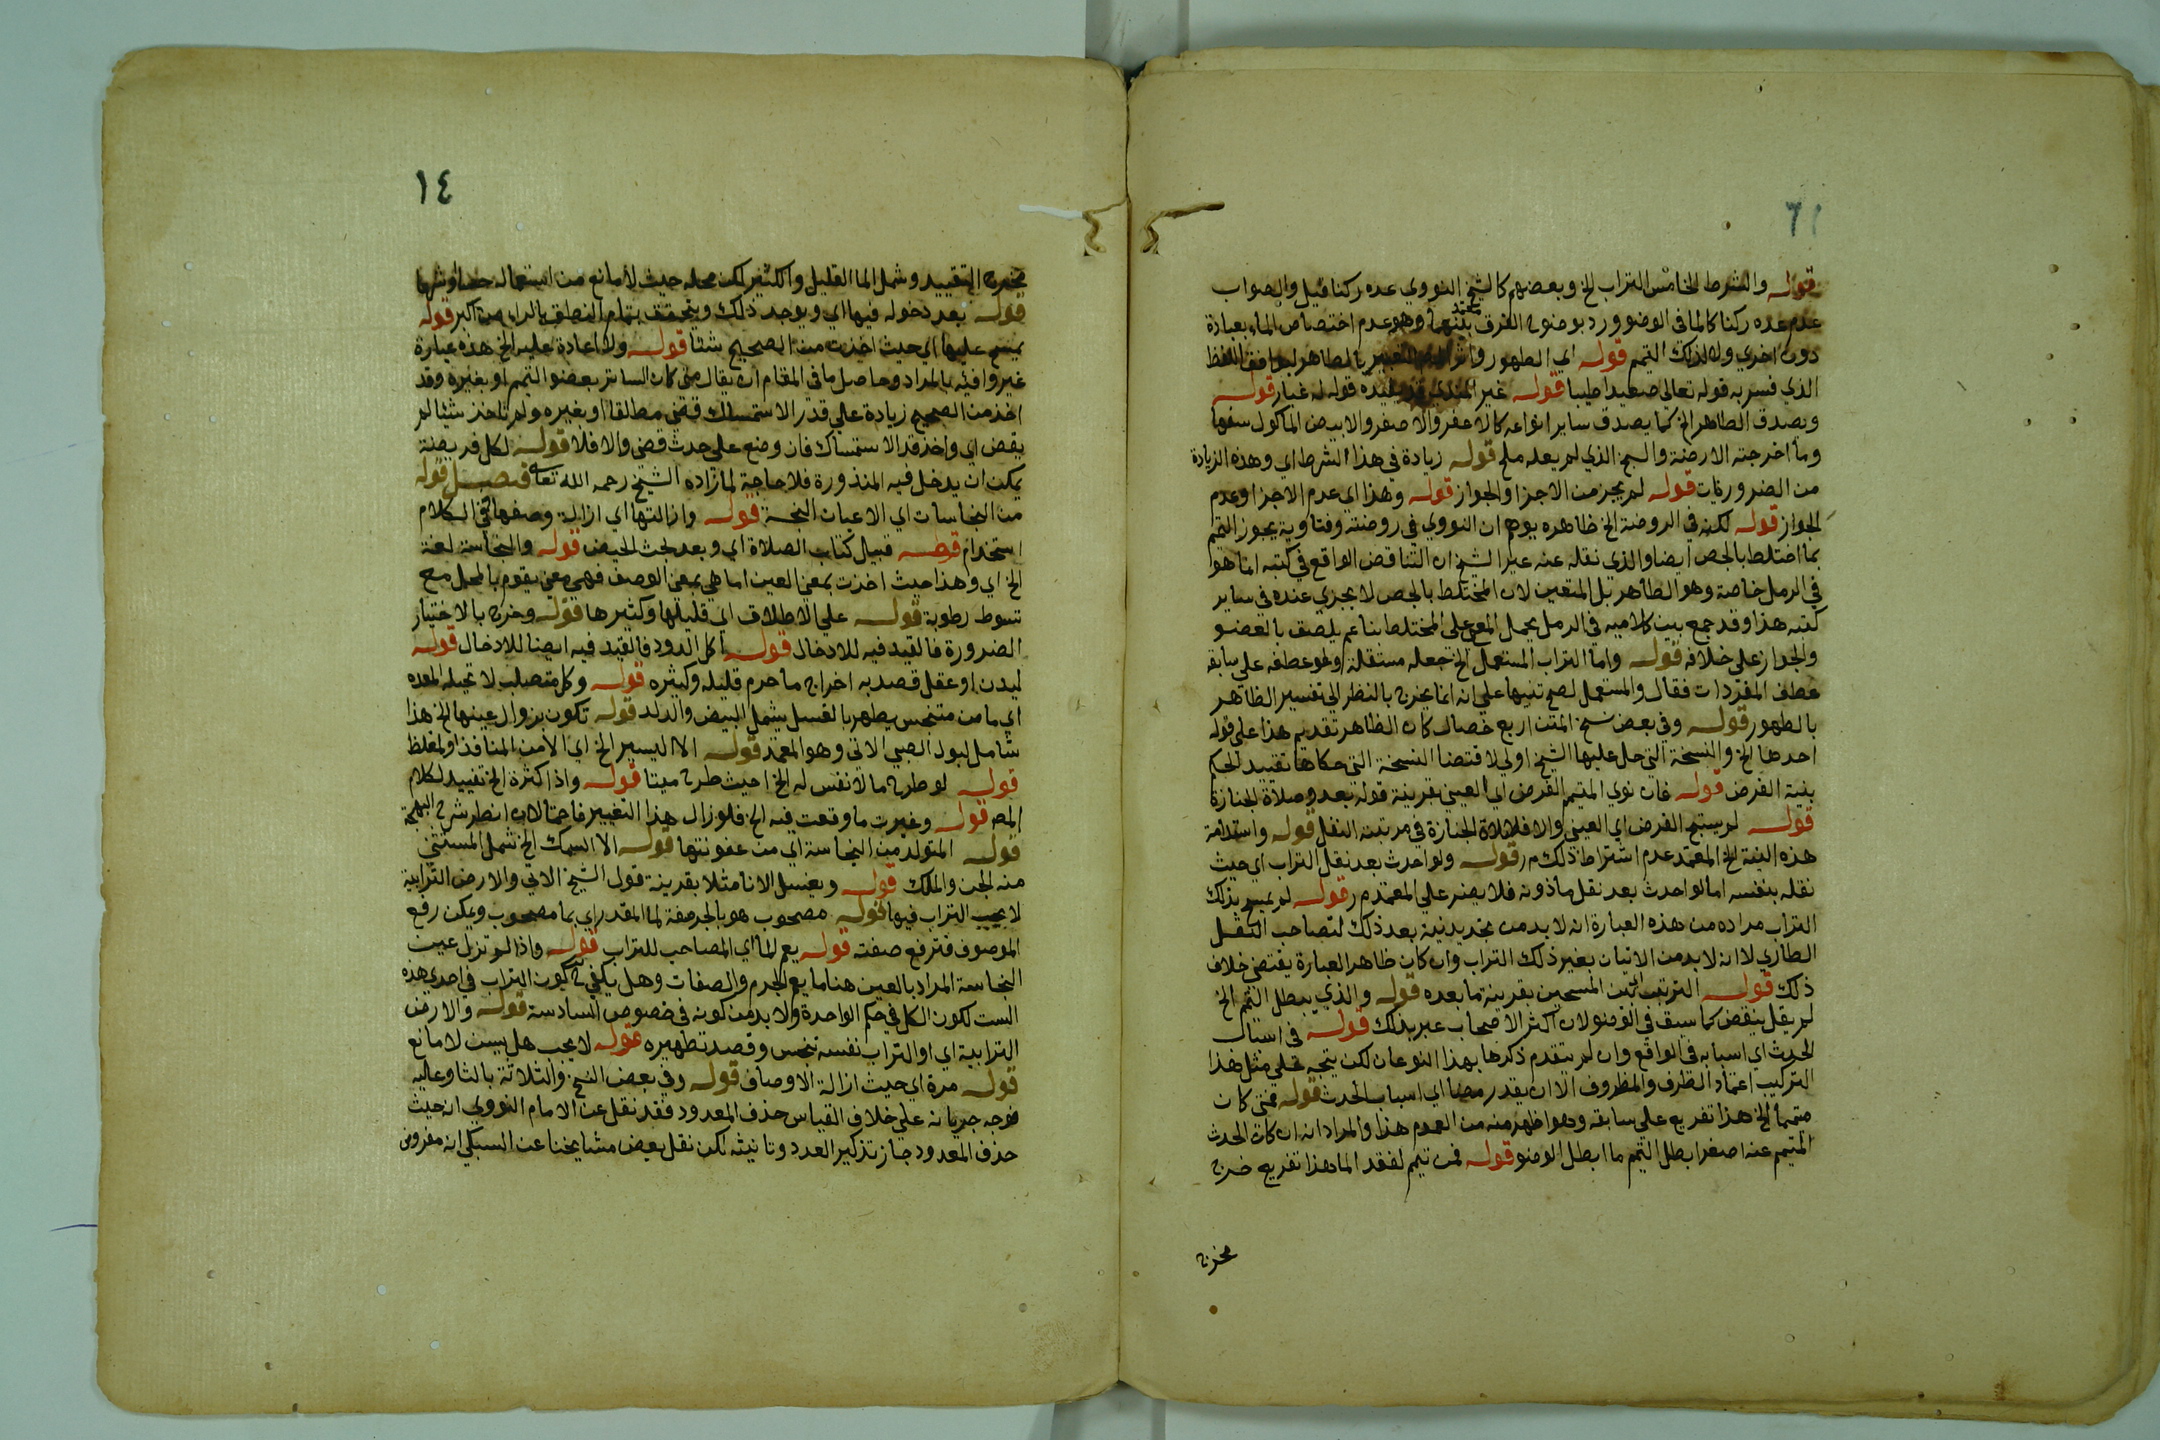 قوله والشرط الخامس التراب الخ وبعضهم كالشيخ النووي عده ركنا قيل والصواب
عدم عده ركنا كالماء في الوضو ورد بوضوح الفرق بينهما وهو عدم اختصاص الماء بعبادة
دون اخري ولا لذلك التيمم قوله اي الطهور بالطاهر ليوافق اللفظ
الذي فسر به قوله تعالى صعيدا طيبا قوله غير قوله له غبار قوله
ويصدق الطاهر الخ كما يصدق ساير انواعه كالاعفر والاصفر والابيض الماكول سفها
وما اخرجته الارضة والسبخ الذي لم يعله ملح قوله زيادة في هذا الشرط اي وهذه الزيادة
من الضروريات قوله لم يجز من الاجزا والجواز قوله وهذا اي عدم الاجزا وعدم
الجواز قوله لكنه في الروضة الخ ظاهره يوهم ان النووي في روضته وفتاويه يجوز التيمم
بما اختلط بالجص ايضا والذي نقله عنه غير الشيخ ان التناقض الواقع في كتبه انما هو
في الرمل خاصة وهو الظاهر بل المتعين لان المختلط بالجص لا يجزي عنده في ساير
كتبه هذا وقد جمع بين كلاميه في الرمل بحمل المنع على المختلط بناعم يلصق بالعضو
والجواز على خلافه قوله واما التراب المستعمل الخ جعله مستقلة ولو عطفه على سابقه
عطف المفردات فقال والمستعمل لصح تنبيها على انه انما يخرج بالنظر الى تفسير الطاهر
بالطهور قوله وفي بعض نسخ المتن اربع خصال كان الظاهر تقديم هذا على قوله
احدها الخ والنسخة التي حل عليها الشيخ اولى لاقتضا النسخة التي حكاها تقييد الحكم
بنية الفرض قوله فان نوى المتيمم الفرض اي العيني بقرينة قوله بعد وصلاة الجنازة
قوله لم يستبح الفرض اي العيني والا فلا صلاة الجنازة في مرتبته النفل قوله واستدامة
هذه النية الخ المعتمد عدم اشتراط ذلك م ر قوله ولو احدث بعد نقل التراب اي حيث
نقله بنفسه اما لو احدث بعد نقل ماذونه فلا يضر علي المعتمد م ر قوله لم يمسح بذلك
التراب مراده من هذه العبارة انه لا بد من تجديد نية بعد ذلك لتصاحب النقل
الطاري لا انه لا بد من الاتيان بغير ذلك التراب وان كان ظاهر العبارة يقتضي خلاف
ذلك قوله الترتيب بين المسحين بقرينة ما بعده قوله والذي يبطل التيمم الخ
لم يقل ينقض كما سبق في الوضو لان اكثر الاصحاب عبر بذلك قوله في اسباب
الحدث اي اسبابه في الواقع وان لم يتقدم ذكرها بهذا النوعان لكن يتجه على مثل هذا
التركيب اعماد الظرف والمظروف الا ان يقدر مضا اي اسباب الحدث قوله فمتى كان
متيمما الخ هذا تفريع على سابقه وهو اظهر منه من العموم هذا والمراد انه ان كان الحدث
المتيمم عنه اصغر ابطل التيمم ما ابطل الوضو قوله فمن تيمم لفقد الماء هذا تفريع خرج
مخرج
١٤
مخرج التقييد وشمل الماء القليل والكثير لكن محله حيث لا مانع من استعماله
قوله بعد دخوله فيها اي ويوجد ذلك ويتحقق بتمام النطق بالراء من اكبر قوله
يمسح عليها اي حيث اخذت من الصحيح شئا قوله ولا اعادة عليه الخ هذه عبارة
غير وافية بالمراد وحاصل ما في المقام ان يقال متى كان الساتر بعضو التيمم او بغيره وقد
اخذ من الصحيح زيادة على قدر الاستمساك قضى مطلقا او بغيره ولم ياخذ شيئا لم
يقض اي واخذ قدر الاستمساك فان وضع على حدث قضى والا فلا قوله لكل فريضة
يمكن ان يدخل فيه المنذورة فلا حاجة لما زاده الشيخ رحمه الله تعالى فصل قوله
من النجاسات اي الاعيان النجسة قوله وازالتها اي ازالة وصفها ففي الكلام
استخدام قوله قبيل كتاب الصلاة اي وبعد بحث الحيض قوله والنجاسة لغة
الخ اي وهذا حيث اخذت بمعنى العين اما هي بمعنى الوصف فهي معنى يقوم بالمحل مع
توسط رطوبة قوله علي الاطلاق اي قليلها وكثيرها قوله وخرج بالاختيار
الضرورة فالقيد فيه للادخال قوله اكل الدود فالقيد فيه ايضا للادخال قوله
لبدن او عقل قصد به اخراج ما حرم قليله وكثيره قوله وكل متصلب لا تحيله المعده
اي ما من متنجس يطهر بالغسل يشمل البيض والولد قوله تكون بزوال عينها الخ هذا
شامل لبول الصبي الاتي وهو المعتمد قوله الا اليسير الخ اي الا من المنافذ او لمغلظ
قوله لو طرح ما لا نفس له الخ احيث طرح ميتا قوله واذا كثرة الخ تقييد لكلام
المص قوله وغيرت ما وقعت فيه الخ فلو زال هذا التغيير فاحتمالان انظر شرح البهجة
قوله المتولد من النجاسة اي من عفونتها قوله الا السمك الخ شمل المستثنى
منه الجن والملك قوله ويغسل الانا مثلا بقرينة قول الشيخ الاتي والارض الترابية
لا يجب التراب فيها قوله مصحوب هو بالجر صفة لما المقدر اي بما مصحوب ويمكن رفع
الموصوف فترفع صفته قوله يعم الماء اي المصاحب للتراب قوله واذا لم تزل عين
النجاسة المراد بالعين هنا ما يعم الجرم والصفات وهل يكفي كون التراب في احدي هذه
الست لكون الكل في حكم الواحدة ولا بد من كونه في خصوص السادسة قوله والارض
الترابية اي او التراب نفسه تنجس وقصد تطهيره قوله لا يجب هل يسن لا مانع
قوله مرة اي حيث ازالة الاوصاف قوله وفي بعض النسخ والثلاثة بالتاء وعليه
فوجه جريانه علي خلاف القياس حذف المعدود فقد نقل عن الامام النووي انه حيث
حذف المعدود جاز تذكير العدد وتانيثه لكن نقل بعض مشايخنا عن السبكي انه مفروض